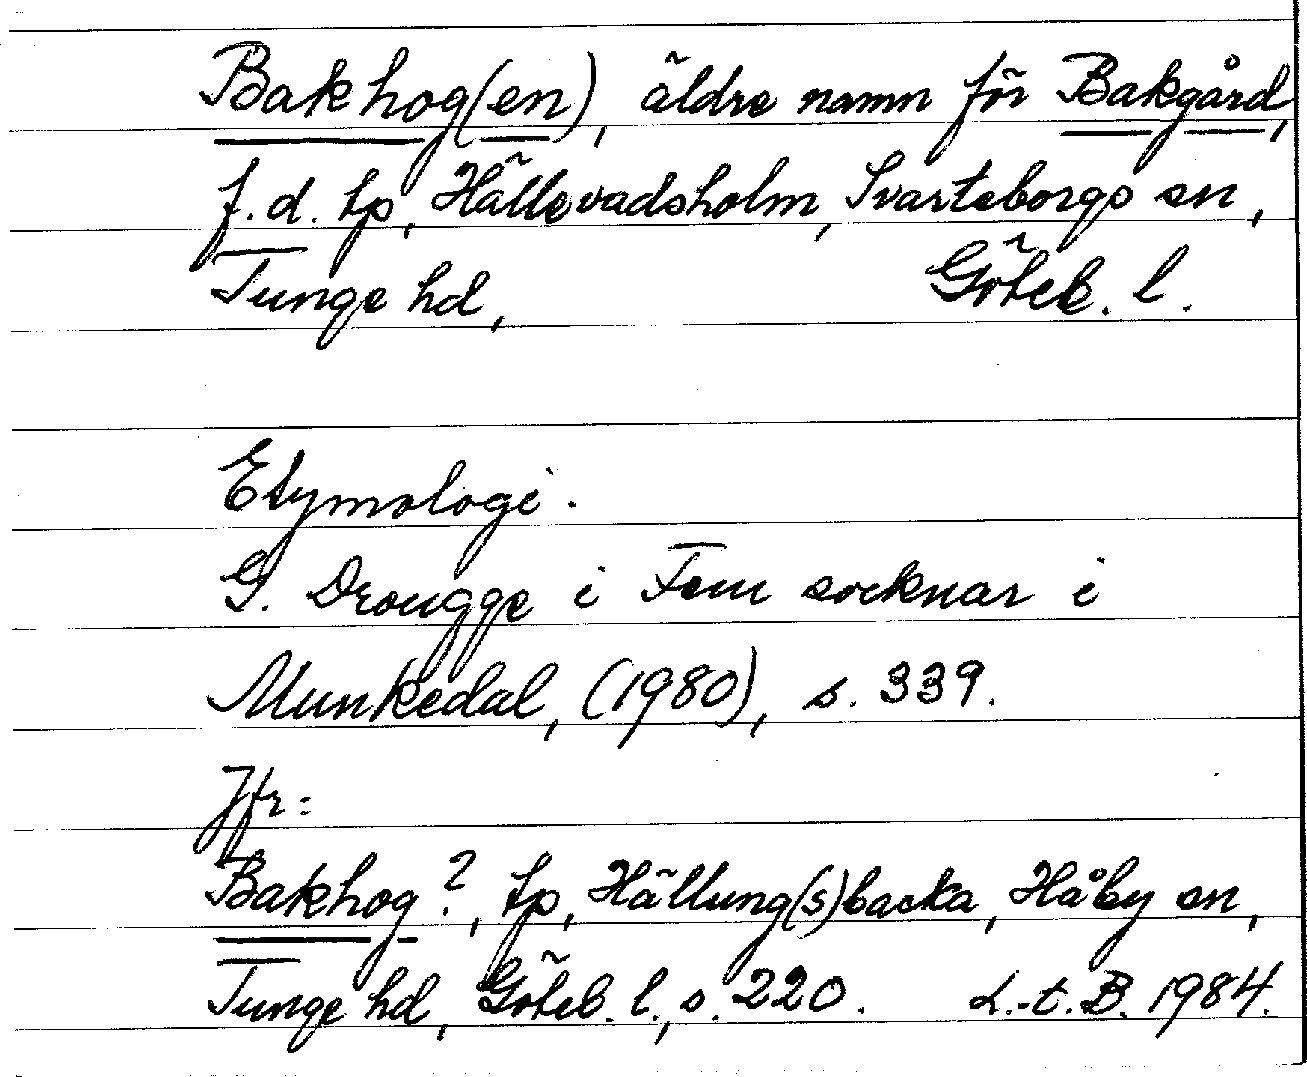 Bakhog(en), äldre namn för Bakgård,
f.d. tp, Hällevadsholm, Svarteborgs sn,
Tunge hd, Göteb. l.
Etymologi.
G. Drougge i Fem socknar i
Munkedal, (1980), s. 339.
Jfr:
Bakhog?, tp, Hällung(s)backa, Håby sn,
Tunge hd, Göteb. l., s. 220. L.-t. B. 1984.